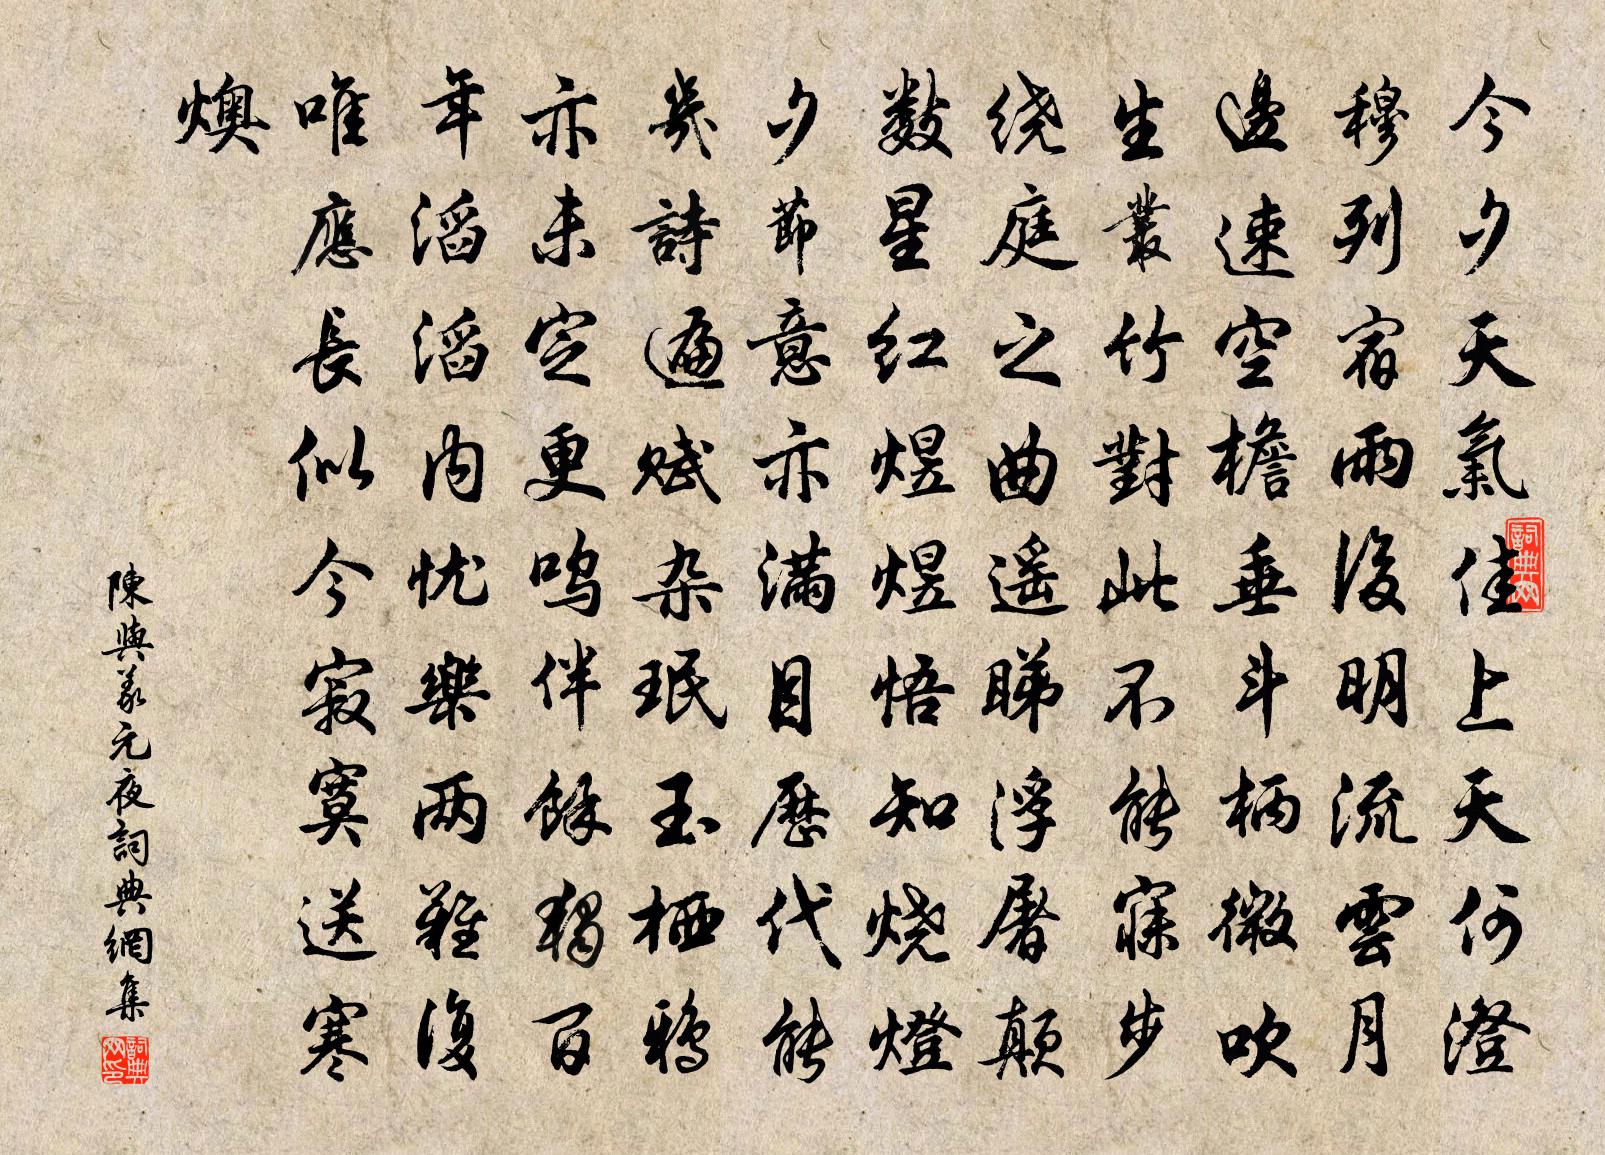 今夕天氣佳上天何澄
穆列宿雨後明流雲月
邊速空檐垂斗柄微吹
生叢竹對此不能寐步
绕庭之曲遥睇浮屠颠
数星红煜煜悟知烧燈
夕節意亦满目歷代能
幾詩遍赋杂珉玉栖鸦
亦未定更鸣伴餘獨百
年滔滔内忧樂两難復
唯應長似今寂寞送寒
燠
陳與義元夜詞典網集
詞典网
詞典网印